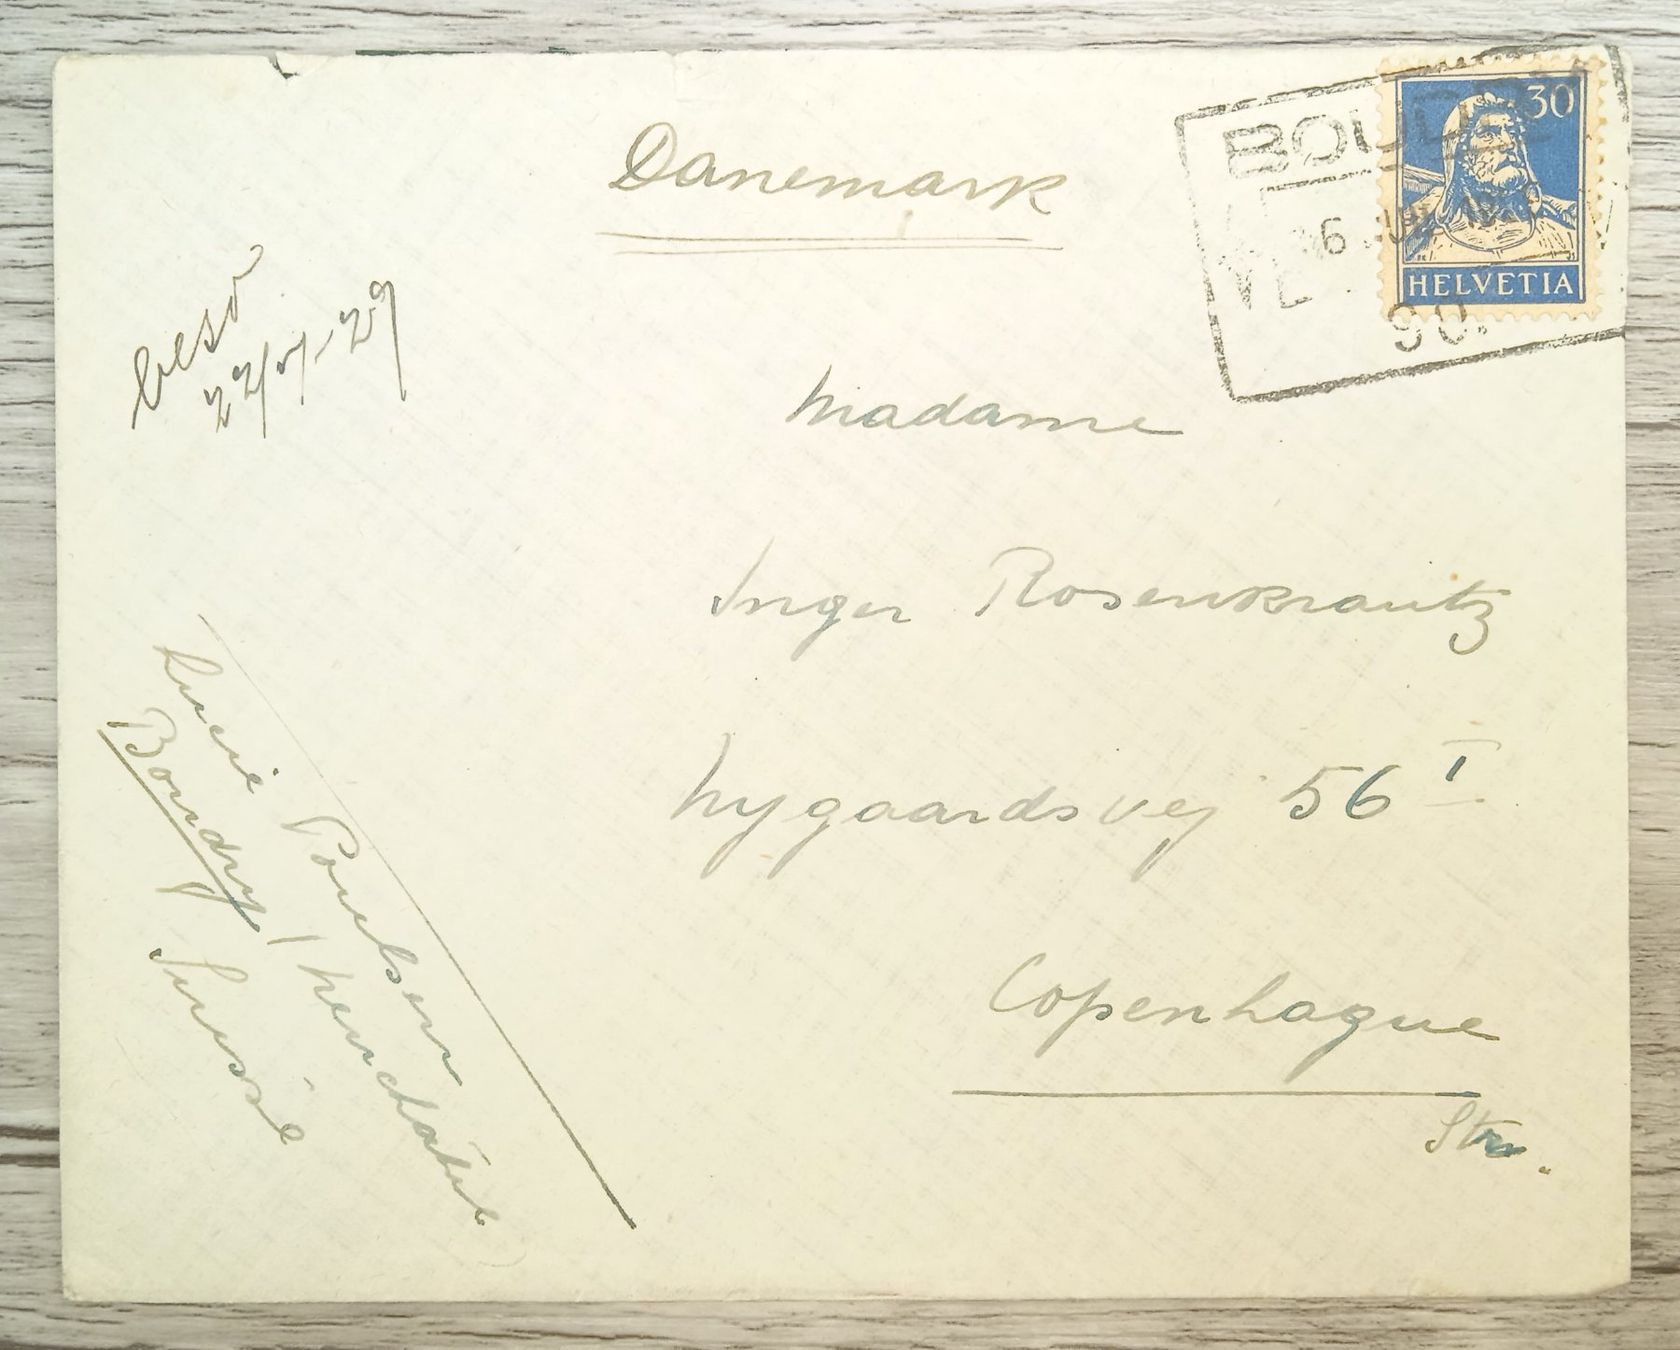 Danemark
BOUDRY
30
6
HELVETIA
90.
besv
22/7-29
Madame
Inger Rosenkrantz
Nygaardsvej 56 I
Copenhague
Str.
Lucie Poulsen
Boudry (Neuchâtel)
Suisse